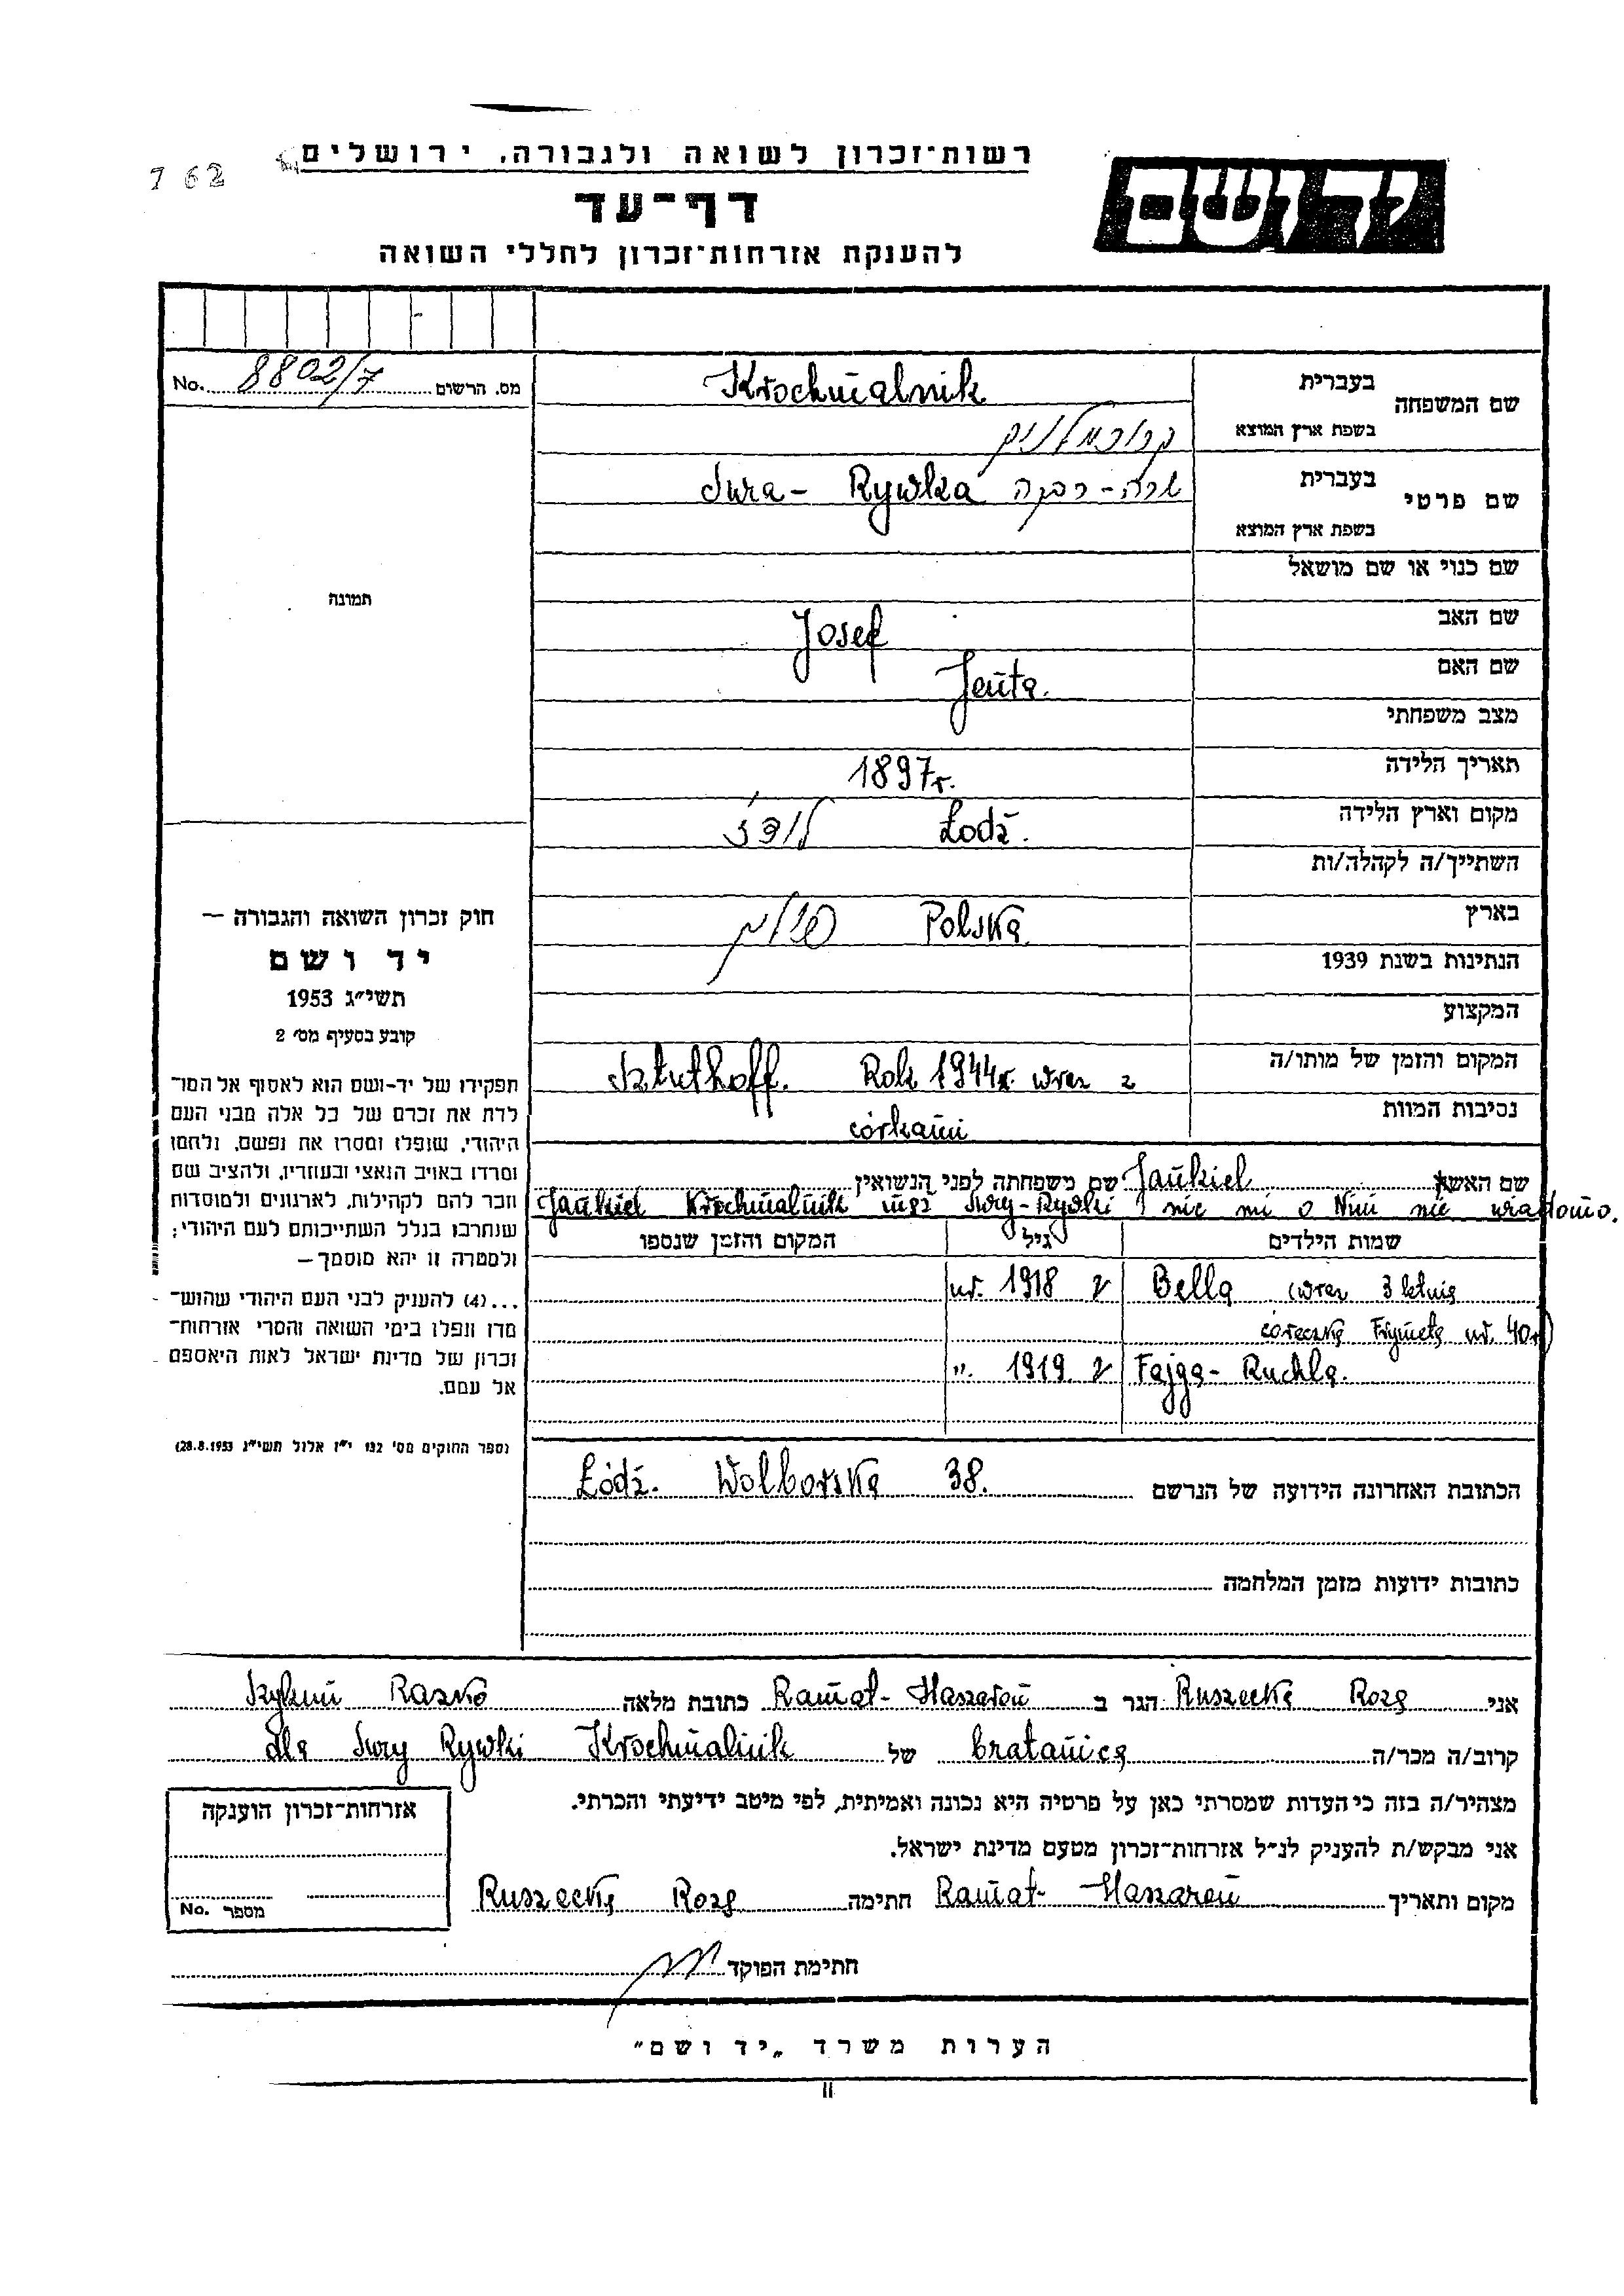 7 62
רשות־זכרון לשואה ולגבורה, ירושלים
יד ושם
דף־עד
להענקת אזרחות־זכרון לחללי השואה
מס. הרשום 8802/7 No.
שם המשפחה
בעברית Krochmalnik
בשפת ארץ המוצא קרוכמלניק
שם פרטי
בעברית שרה-רבקה Sura- Rywka
בשפת ארץ המוצא
שם כנוי או שם מושאל
שם האב Josef
שם האם Jenta.
מצב משפחתי
תאריך הלידה 1897r.
מקום וארץ הלידה Łodź. לודז'
השתייך/ה לקהלה/ות
בארץ Polska פולין
הנתינות בשנת 1939
המקצוע
המקום והזמן של מותו/ה Sztuthoff. Rok 1944r. wraz z
נסיבות המוות córkami
שם האשה Jankiel שם משפחתה לפני הנשואין
Jankiel Krochmalnik mąż Sury-Rywki i nic mi o Nim nie wiadomo.
שמות הילדים גיל המקום והזמן שנספו
Bella (wraz 3 letnią ur. 1918 r
córeczką Frymetą ur. 40r)
Fajga- Ruchla. ". 1919 r
הכתובת האחרונה הידועה של הנרשם Łódź. Wolborska 38.
כתובות ידועות מזמן המלחמה
תמונה
חוק זכרון השואה והגבורה —
יד ושם
תשי"ג 1953
קובע בסעיף מס' 2
תפקידו של יד-ושם הוא לאסוף אל המו־
לדת את זכרם של כל אלה מבני העם
היהודי, שנפלו ומסרו את נפשם, נלחמו
ומרדו באויב הנאצי ובעוזריו, ולהציב שם
וזכר להם לקהילות, לארגונים ולמוסדות
שנחרבו בגלל השתייכותם לעם היהודי;
ולמטרה זו יהא מוסמך —
...(4) להעניק לבני העם היהודי שהוש־
מדו ונפלו בימי השואה והמרי אזרחות־
זכרון של מדינת ישראל לאות היאספם
אל עמם.
(ספר החוקים מס' 132 י"ז אלול תשי"ג 28.8.1953)
אני Ruszecka Roza הגר ב Ramat- Haszaron כתובת מלאה Szykun Rasko
קרוב/ה מכר/ה bratanica של Krochmalnik dla Sury Rywki
מצהיר/ה בזה כי העדות שמסרתי כאן על פרטיה היא נכונה ואמיתית, לפי מיטב ידיעתי והכרתי.
אני מבקש/ת להעניק לנ"ל אזרחות־זכרון מטעם מדינת ישראל.
מקום ותאריך Ramat- Haszaron חתימה Ruszecka Roza
אזרחות־זכרון הוענקה
מספר No.
חתימת הפוקד
הערות משרד „יד ושם"
II